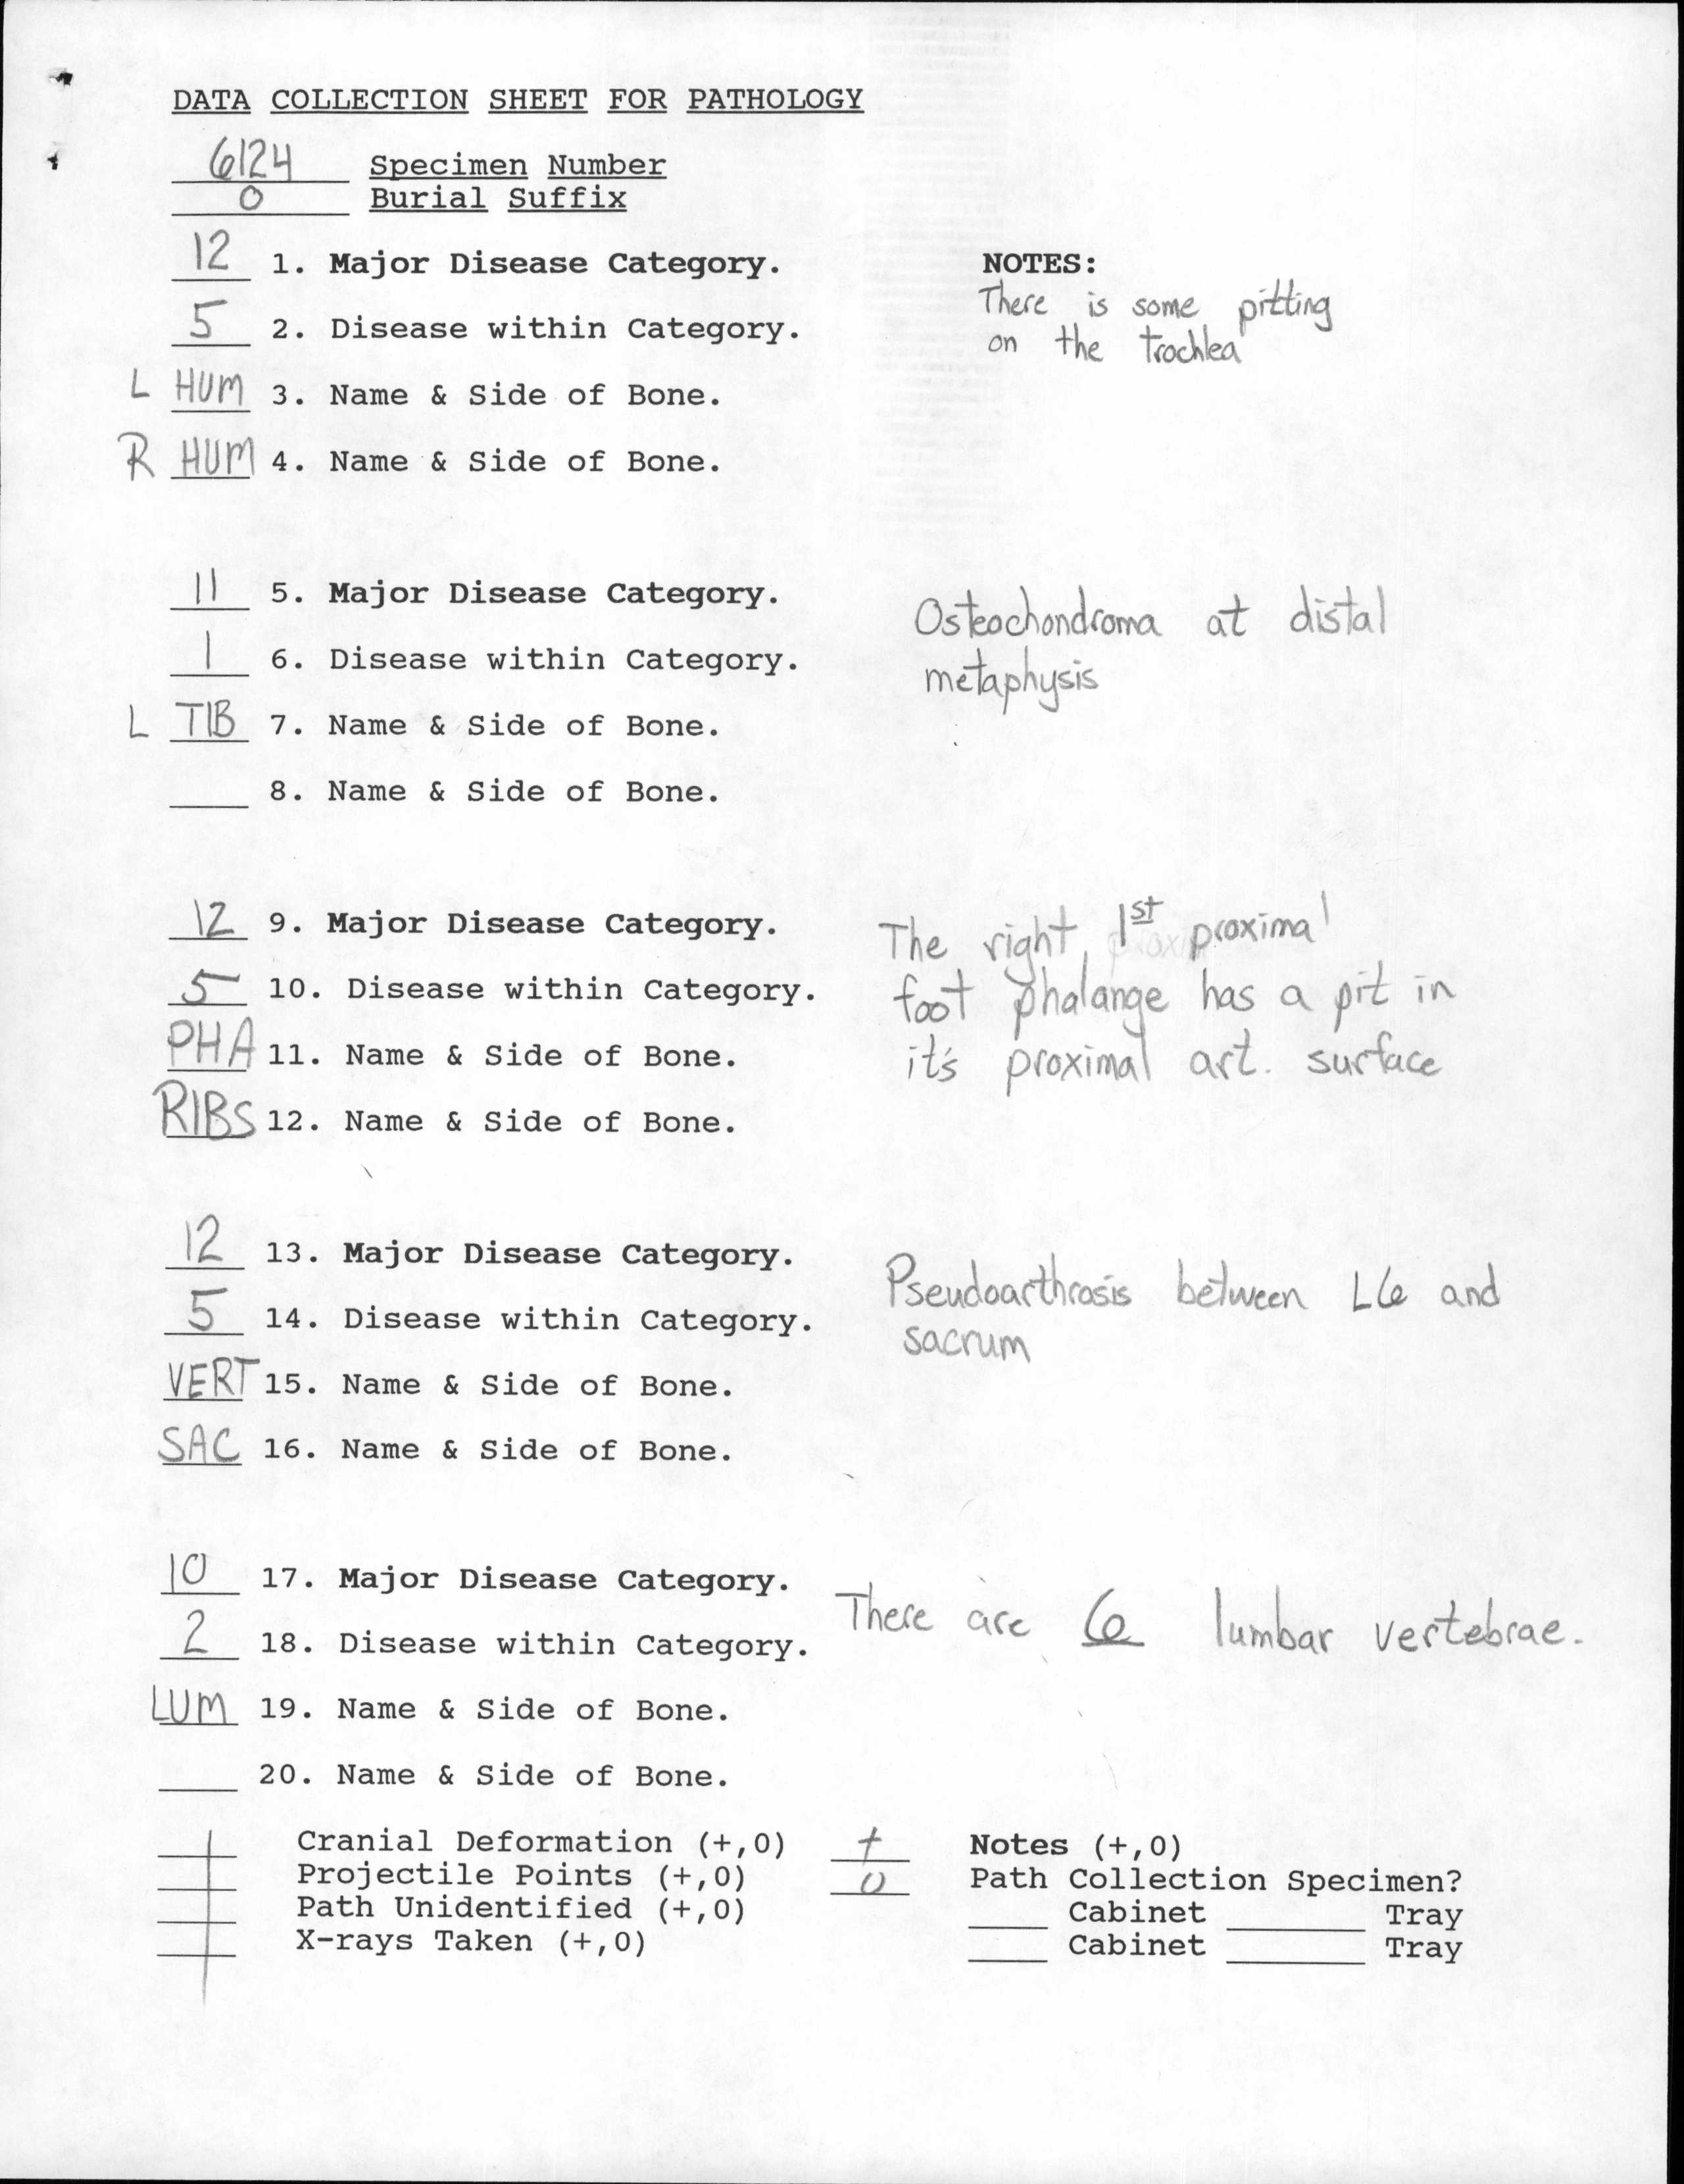 DATA COLLECTION SHEET FOR PATHOLOGY
6124 Specimen Number
0 Burial Suffix
12 1. Major Disease Category.
NOTES:
There is some pitting
on the trochlea
5 2. Disease within Category.
L HUM 3. Name & Side of Bone.
R HUM 4. Name & Side of Bone.
11 5. Major Disease Category.
Osteochondroma at distal
metaphysis
1 6. Disease within Category.
L TIB 7. Name & Side of Bone.
8. Name & Side of Bone.
12 9. Major Disease Category.
The right 1st proximal
foot phalange has a pit in
it's proximal art. surface
5 10. Disease within Category.
PHA 11. Name & Side of Bone.
RIBS 12. Name & Side of Bone.
12 13. Major Disease Category.
Pseudoarthrosis between L6 and
sacrum
5 14. Disease within Category.
VERT 15. Name & Side of Bone.
SAC 16. Name & Side of Bone.
10 17. Major Disease Category.
There are 6 lumbar vertebrae.
2 18. Disease within Category.
LUM 19. Name & Side of Bone.
20. Name & Side of Bone.
Cranial Deformation (+,0)
Projectile Points (+,0)
Path Unidentified (+,0)
X-rays Taken (+,0)
+ Notes (+,0)
0 Path Collection Specimen?
Cabinet Tray
Cabinet Tray